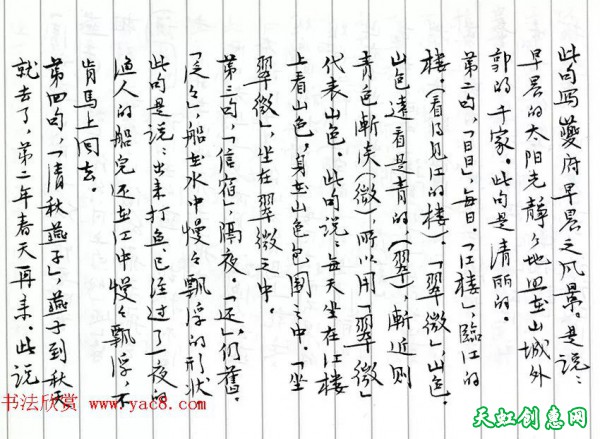 此句写夔府早晨之风景。是说：
早晨的太阳光静々地照在山城外
郭的千家。此句是清丽的。
第二句「日日」，每日。「江楼」，临江的
楼（看得见江的楼）。「翠微」，山色。
山色远看是青的，（翠），渐近则
青色渐淡（微），所以用「翠微」
代表山色。此句说：每天坐在江楼
上看山色，身在山色包围之中，「坐
翠微」，坐在翠微之中。
第三句，「信宿」，隔夜。「还」，仍旧。
「泛々」，船在水中慢々飘浮的形状
此句是说：出来打鱼，已经过了一夜的
渔人的船，还在江中慢々飘浮，不
肯马上回去。
第四句，「清秋燕子」，燕子到秋天
就去了，第二年春天再来。此说
书法欣赏 www.yac8.com
天虹创意网